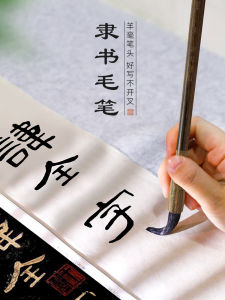 隶书毛笔
羊毫笔头 好写不开叉
諱全字
全